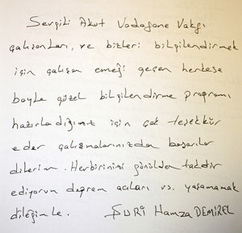 Sevgili Akut Vodafone Vakfı
çalışanları, ve bizleri bilgilendirmek
için çalışan emeği geçen herkese
böyle güzel bilgilendirme programı
hazırladığınız için çok teşekkür
eder çalışmalarınızdan başarılar
dilerim. Herbirinizi gönülden takdir
ediyorum deprem acıları vs. yaşamamak
dileğimle. Hamza DEMİREL